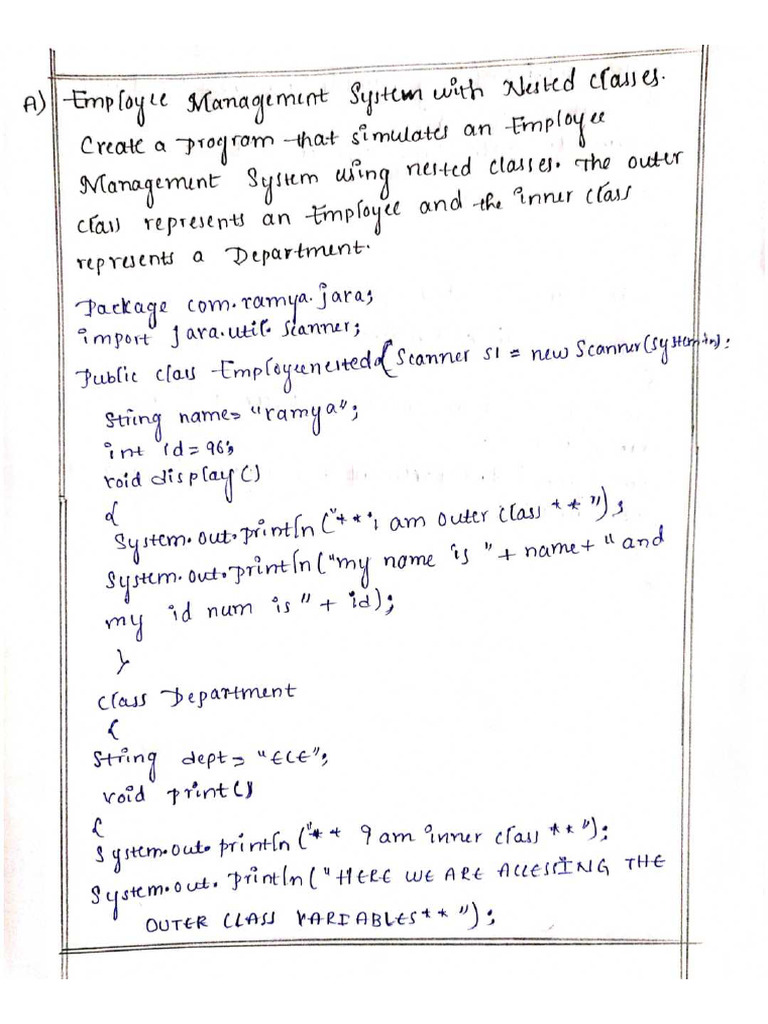 A) Employee Management System with Nested classes.
Create a program that simulates an Employee
Management System using nested classes. The outer
class represents an Employee and the inner class
represents a Department.
Package com.ramya.java;
import java.util.Scanner;
Public class Employeenested{ Scanner s1 = new Scanner(System.in);
String name= "ramya";
int id = 96;
void display()
{
System.out.println("**i am outer class **");
System.out.println("my name is "+ name+ " and
my id num is" + id);
}
class Department
{
String dept= "ECE";
void print()
{
System.out.println("** I am inner class **");
System.out.println("HERE WE ARE ACCESSING THE
OUTER CLASS VARIABLES**");